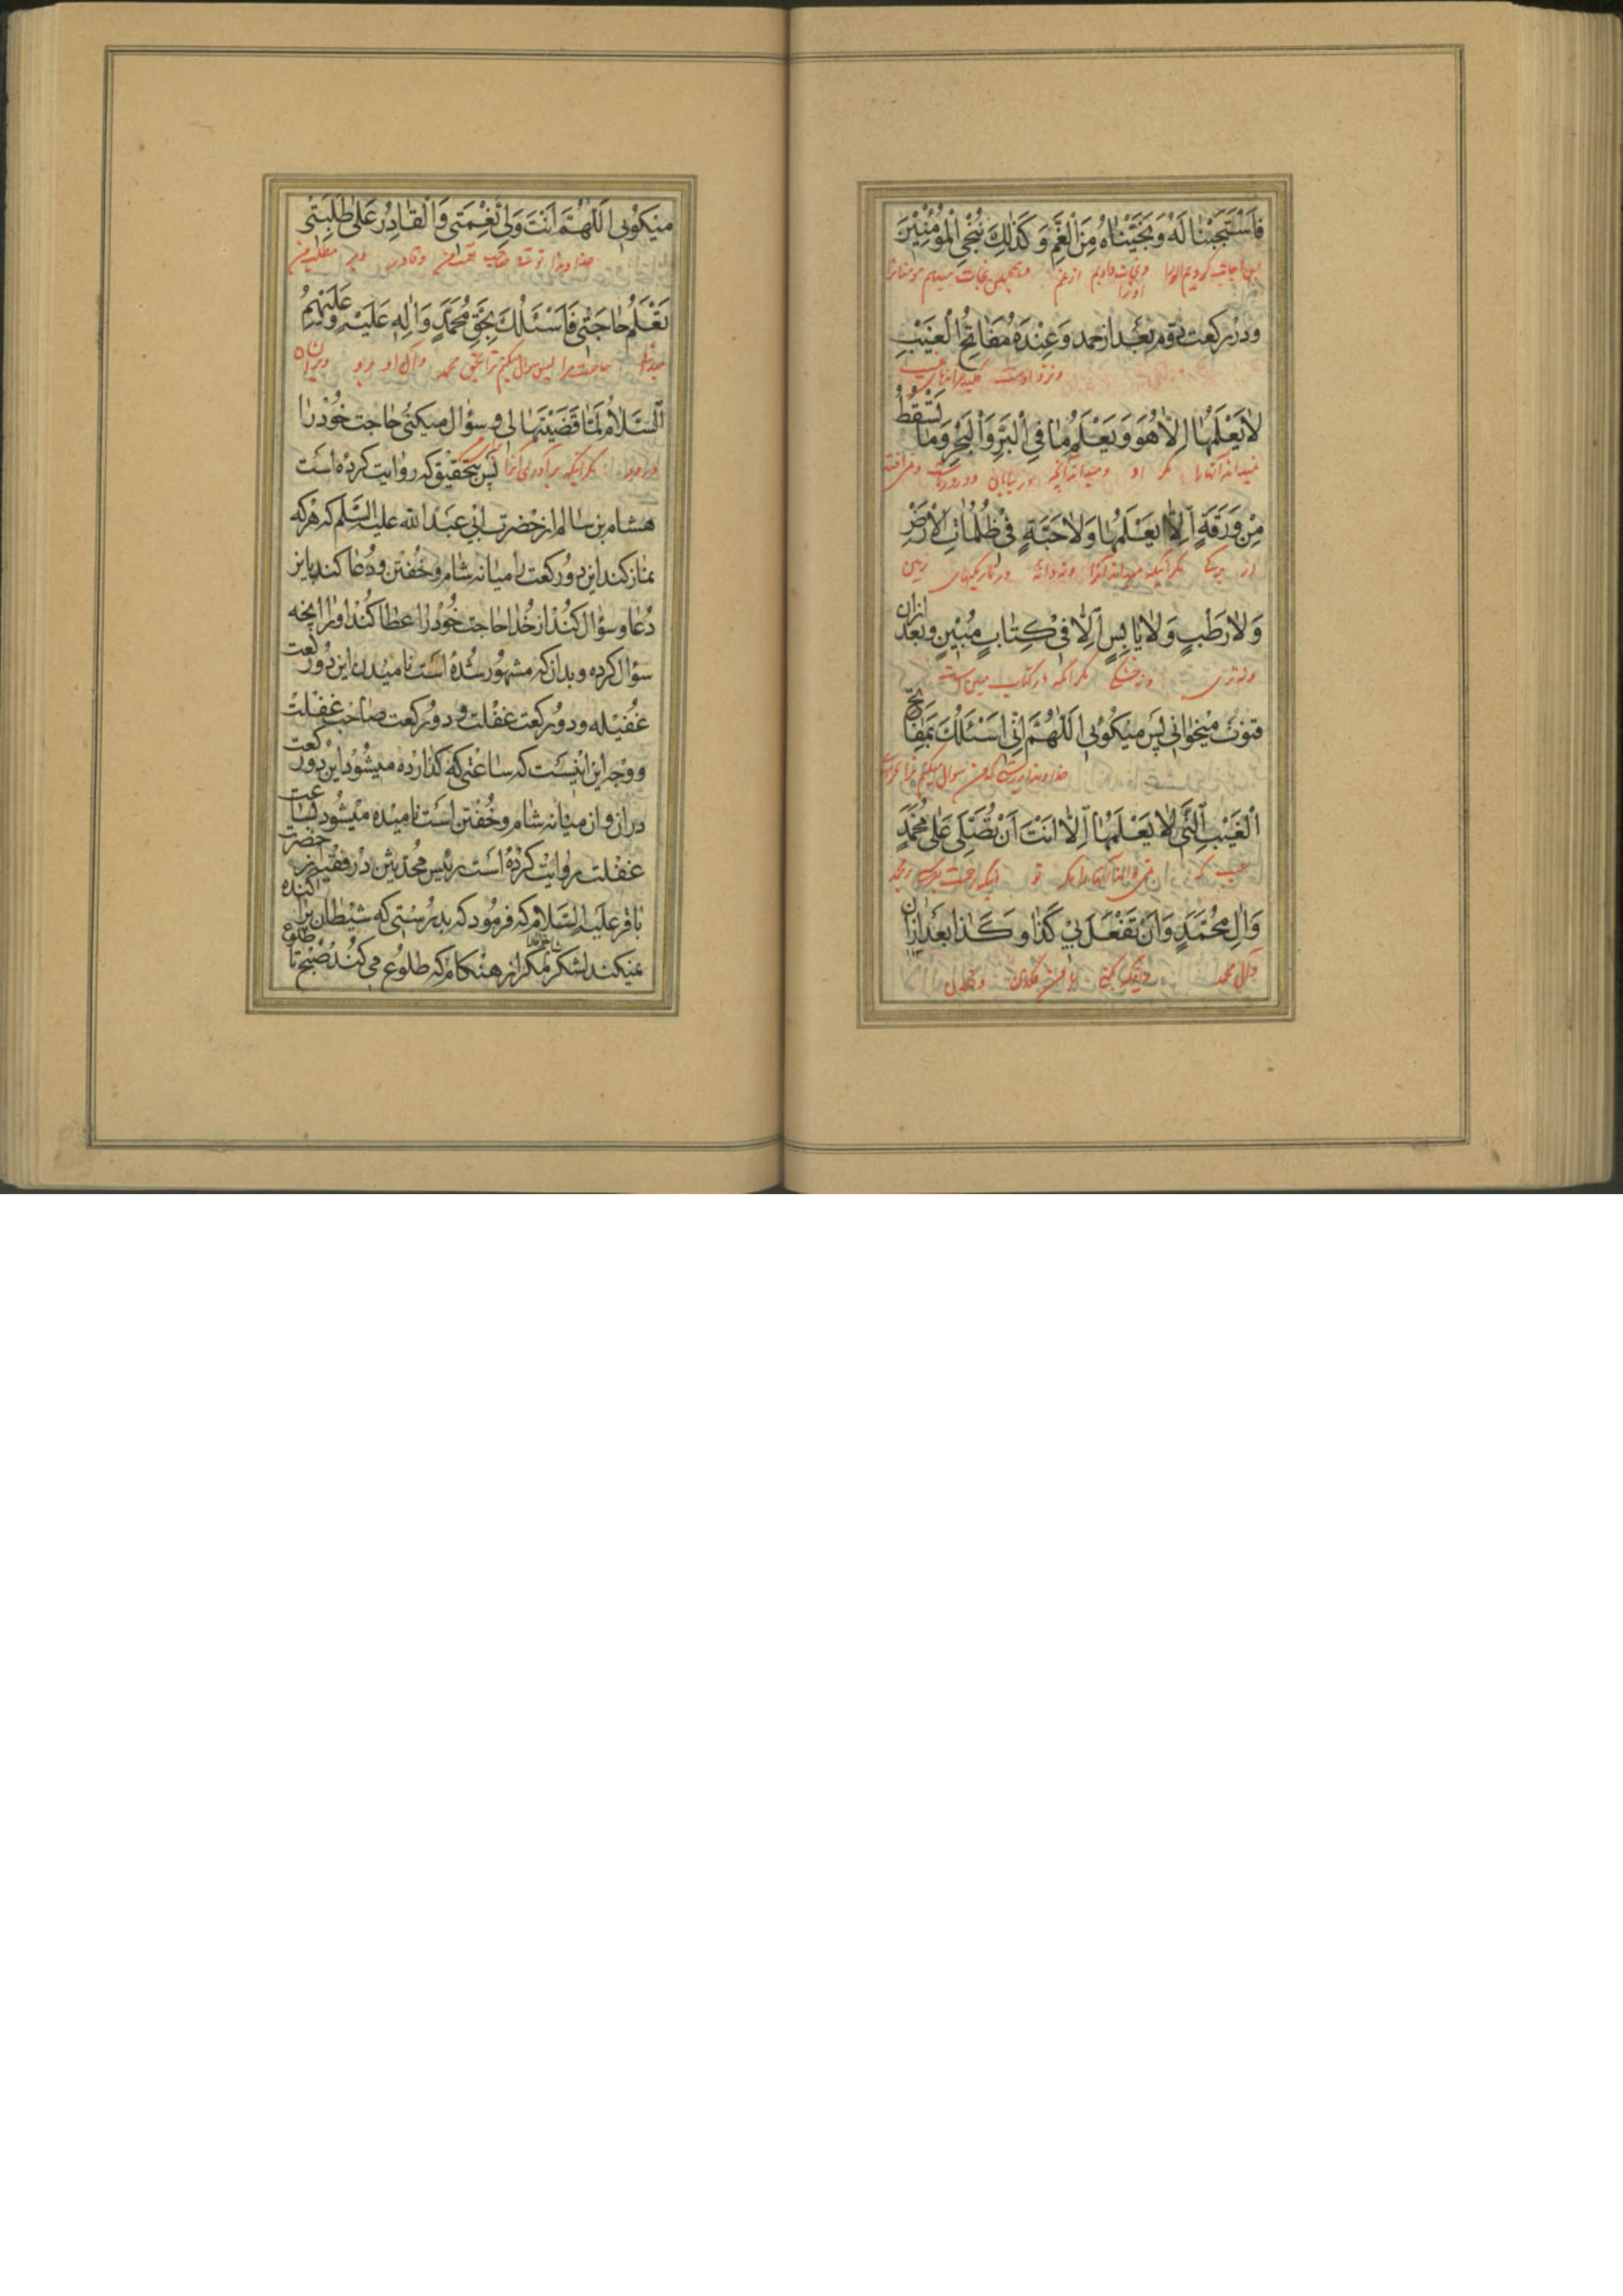 فَاسْتَجَبْنٰا لَهُ وَنَجَّيْنٰاهُ مِنَ الْغَمِّ وَكَذٰلِكَ نُنْجِي الْمُؤْمِنِيْنَ
پس اجابت کردیم او را ونجات دادیم او را از غم وهمچنین نجات میدهیم مومنانرا
ودر رکعت دوم بعد از حمد وَعِنْدَهُ مَفٰاتِحُ الْغَيْبِ
ونزد اوست کلید خزانهای غیب
لٰا يَعْلَمُهٰا اِلّٰا هُوَ وَيَعْلَمُ مٰا فِي الْبَرِّ وَالْبَحْرِ وَمٰا تَسْقُطُ
نمیداند آنها را مگر او ومیداند آنچه در بیابان ودر دریاست ونمی افتد
مِنْ وَرَقَةٍ اِلّٰا يَعْلَمُهٰا وَلٰا حَبَّةٍ فِيْ ظُلُمٰاتِ الْاَرْضِ
از برگی مگر آنکه میداند آنرا ونه دانهٔ در تاریکیهای زمین
وَلٰا رَطْبٍ وَلٰا يٰابِسٍ اِلّٰا فِيْ كِتٰابٍ مُبِيْنٍ وبعد ازان
ونه تری ونه خشکی مگر آنکه در کتاب مبین است
قنوت میخوانی پس میکوئی اَللّٰهُمَّ اِنِّي اَسْئَلُكَ بِمَفٰاتِحِ
خداوندا بدرستیکه من سوال میکنم ترا
الْغَيْبِ الَّتِي لٰا يَعْلَمُهٰا اِلّٰا اَنْتَ اَنْ تُصَلِّيَ عَلٰى مُحَمَّدٍ
غیب که نمی داند آنها را مگر تو اینکه رحمت بفرستی بر محمد
وَاٰلِ مُحَمَّدٍ وَاَنْ تَفْعَلَ بِيْ كَذٰا وَكَذٰا بعد ازان
وآل محمد واینکه بکنی با من
میکوئی اَللّٰهُمَّ اَنْتَ وَلِيُّ نِعْمَتِي وَالْقٰادِرُ عَلٰى طَلِبَتِي
خداوندا توئی صاحب نعمت من وقادر بر مطلب من
تَعْلَمُ حٰاجَتِي فَاَسْئَلُكَ بِحَقِّ مُحَمَّدٍ وَاٰلِهِ عَلَيْهِ وَعَلَيْهِمُ
میدانی حاجت مرا پس سوال میکنم ترا بحق محمد وآل او بر او وبر ایشان
السَّلٰامُ لَمّٰا قَضَيْتَهٰا لِي و سؤال میکنی حاجت خود را
مگر اینکه برآوری آنرا پس بتحقیق که روایت کرده است
هشام بن سالم از حضرت ابی عبد الله علیه السلم که هرکه
نماز کند این دو رکعت را میانه شام و خفتن و دعا کند باین
دعا و سؤال کند از خدا حاجت خود را عطا کند او را انچه
سؤال کرده و بدان که مشهور شده است نامیدن این دو رکعت
غفیله و دو رکعت غفلت و دو رکعت صاحب غفلت
و وجه این اینست که ساعتی که گذارده میشود این دو رکعت
دران وان میانه شام و خفتن است نامیده میشود بساعت
غفلت روایت کرده است رئیس محدثین در فقیه از حضرت
باقر علیه السلام که فرمود که بدرستی که شیطان پراکنده
نمیکند لشکر شام را مگر از هنگام که طلوع می کند صبح تا طلوع